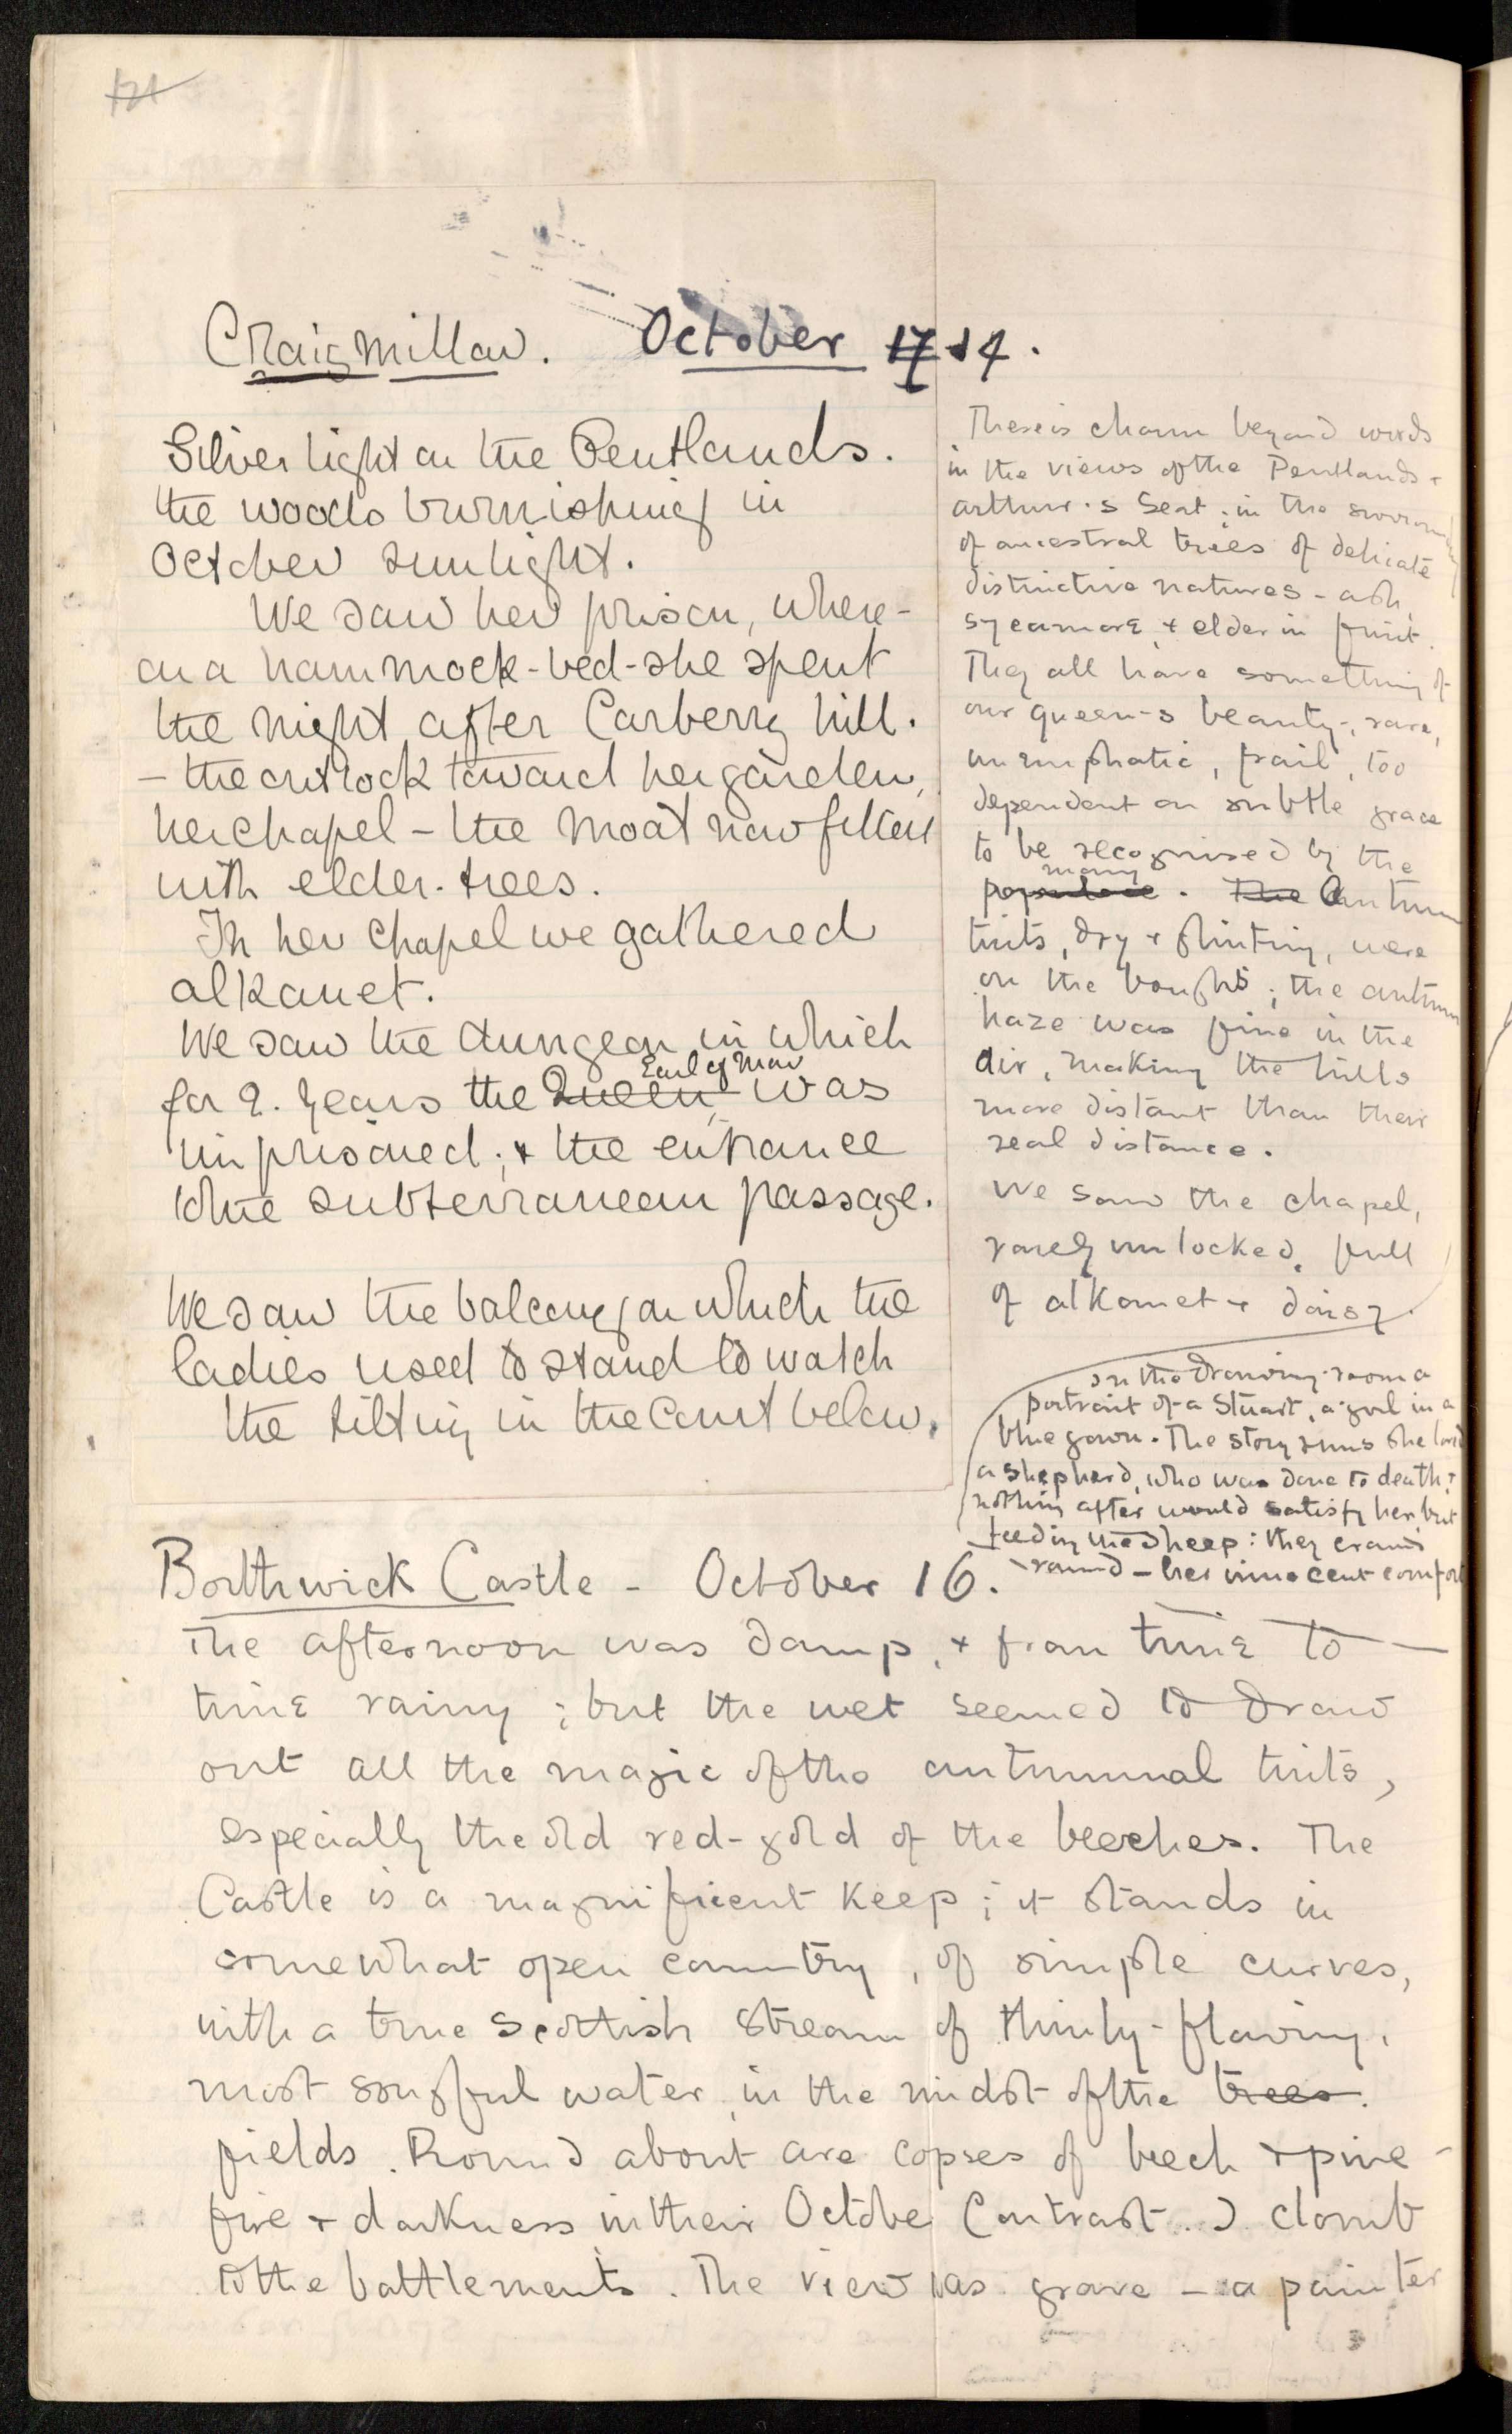 Craigmillar. October 14.
Silver light on the Pentlands.
the woods burnishing in
October sunlight.
We saw her prison, where -
on a hammock-bed - she spent
the night after Carberry hill.
- the outlook toward her garden,
her chapel - the moat now filled
with elder-trees.
In her chapel we gathered
alkanet.
We saw the dungeon in which
Earl of Mar
for 2. years the Queen was
imprisoned; + the entrance
to the subterranean passage.
We saw the balcony on which the
ladies used to stand to watch
the tilting in the Court below.
There is charm beyond words
in the views of the Pentlands +
Arthur's Seat; in the
of ancestral trees of delicate
distinctive natures - ash,
sycamore + elder in fruit.
They all have something of
our queen's beauty, rare,
unemphatic, frail, too
dependent on subtle grace
to be recognised by the
many
populace. The Autumn
tints, dry + glinting, were
on the boughs; the autumn
haze was fine in the
air, making the hills
more distant than their
real distance.
We saw the chapel,
rarely unlocked, full
of alkanet + daisy.
In the drawing-room a
portrait of a Stuart, a girl in a
blue gown. The story runs she loved
a shepherd, who was done to death +
nothing after would satisfy her but
feeding the sheep: they crowd
round - her innocent comfort
Borthwick Castle - October 16.
The afternoon was damp, + from time to
time rainy; but the wet seemed to draw
out all the magic of the autumnal tints,
especially the old red-gold of the beeches. The
Castle is a magnificent keep; it stands in
somewhat open country, of simple curves,
with a true Scottish stream of thinly-flowing,
most songful water in the midst of the trees.
fields. Round about are copses of beech + pine -
fire + darkness in their October Contrast... I clomb
to the battlements. The view was grave - a painter